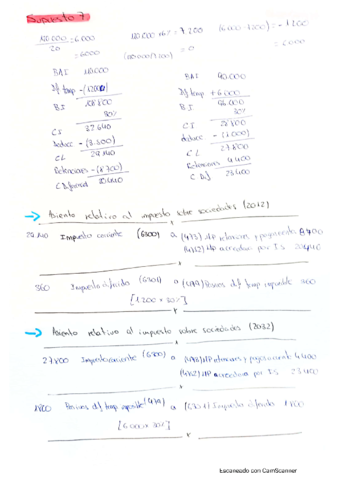 Supuesto 7
120.000 = 6.000
20
120.000 x 6% = 7.200
(6.000 - 7.200) = -1.200
= 6000
= 0
= 6000
BAI 110.000
Df temp - (1200)
BI 108.800
30%
CI 32.640
Deducc - (3.500)
CL 29.140
Retenciones - (8.700)
C Diferencial 20.440
BAI 90.000
Df temp + 6.000
BI 96.000
30%
CI 28.800
deducc - (1.000)
CL 27.800
Retenciones 4.400
C Dif 23.400
→ Asiento relativo al impuesto sobre sociedades (2012)
29.140 Impuesto corriente (6300) a (473) HP retenciones y pagos a cuenta 8.700
(4752) HP acreedora por I.S. 20.440
x
360 Impuesto diferido (6301) a (479) Pasivos df temp imponible 360
[1200 x 30%]
x
→ Asiento relativo al impuesto sobre sociedades (2032)
27.800 Impuesto corriente (6300) a (473) HP retenciones y pagos a cuenta 4.400
(4752) HP acreedora por I.S. 23.400
x
1.800 Pasivos df temp imponible (479) a (6301) Impuesto diferido 1.800
[6.000 x 30%]
x
Escaneado con CamScanner